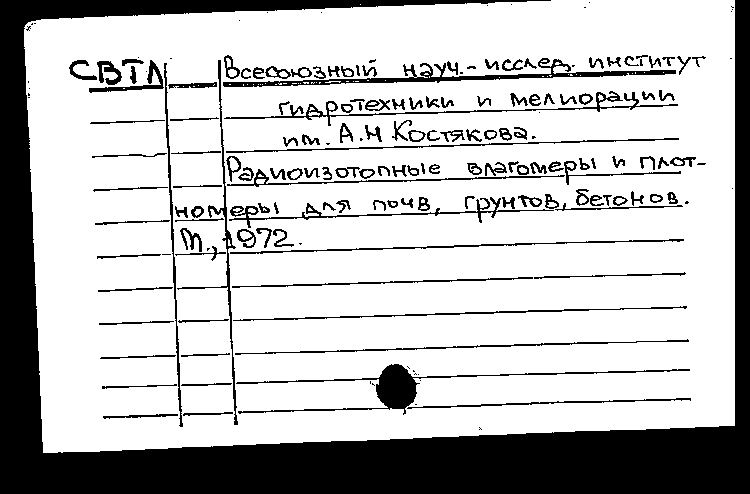 СВТЛ Всесоюзный науч.-исслед. институт
гидротехники и мелиорации
им. А.Н Костякова.
Радиоизотопные влагомеры и плот-
номеры для почв, грунтов, бетонов.
М., 1972.